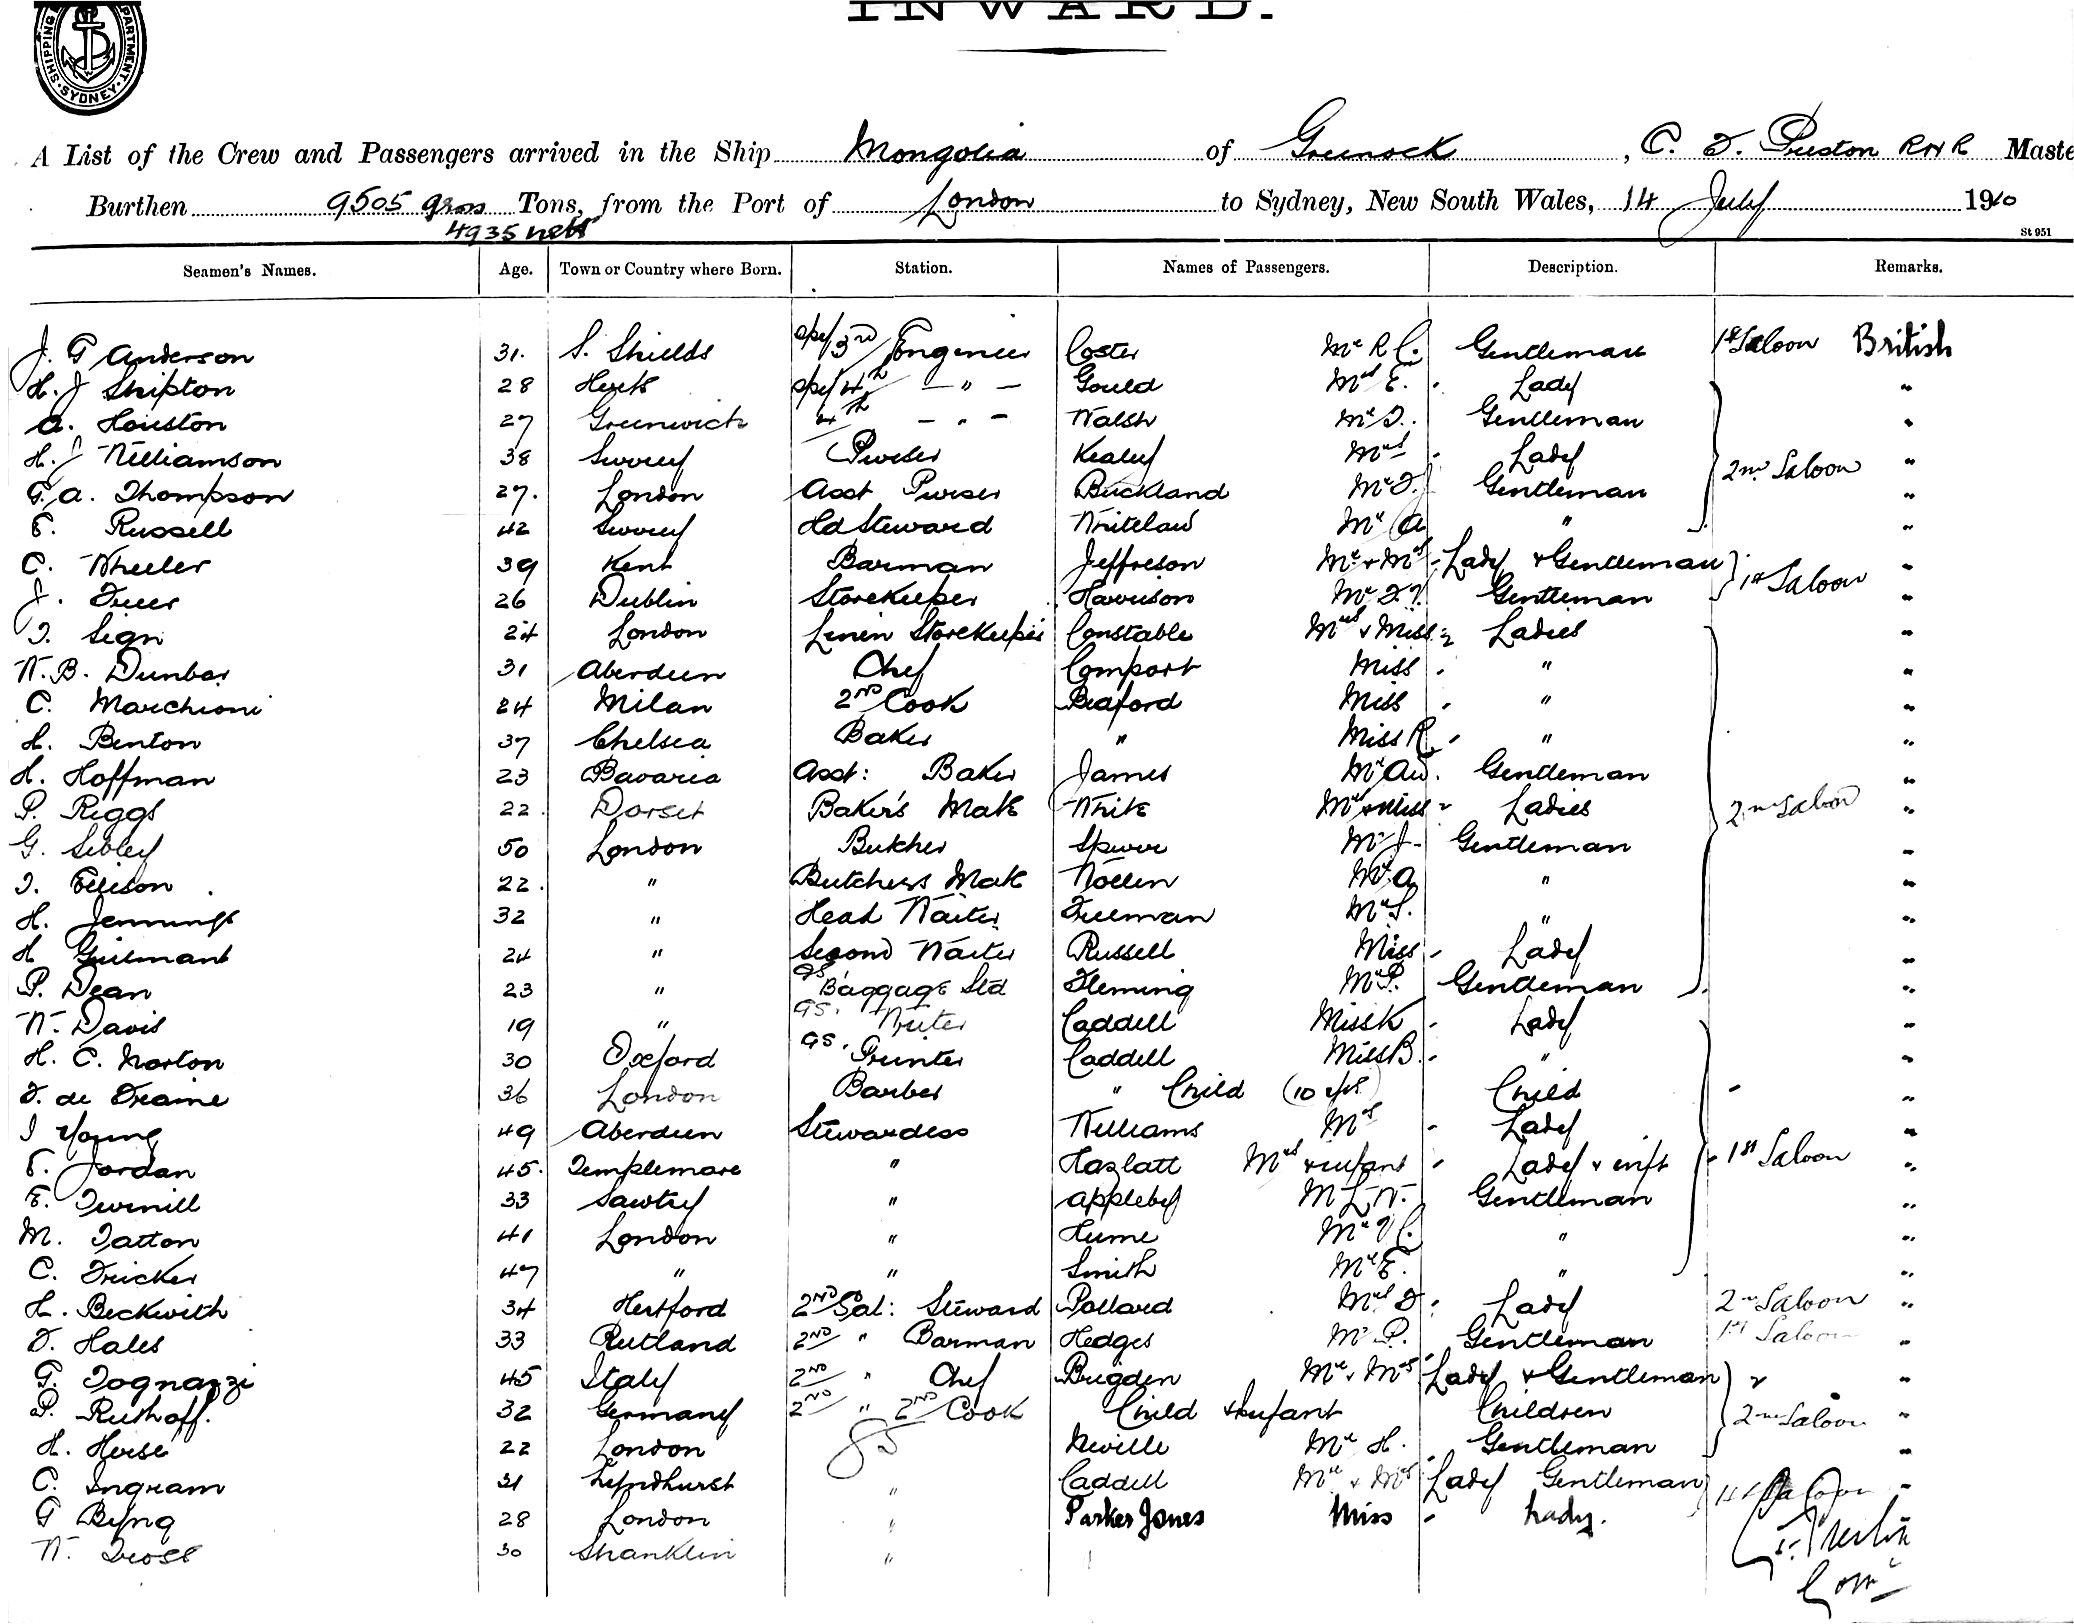 INWARD.
SHIPPING DEPARTMENT SYDNEY
A List of the Crew and Passengers arrived in the Ship Mongolia of Greenock, C. D. Preston RNR Maste
Burthen 9505 gross Tons, from the Port of London to Sydney, New South Wales, 14 July 1910
4935 nett
St 951
Seamen's Names. Age. Town or Country where Born. Station. Names of Passengers. Description. Remarks.
J. G Anderson 31. S. Shields 3rd Engineer Coster Mr R C. Gentleman 1st Saloon British
H. J Shipton 28 Herts 4th — " — Gould Mrs E. Lady "
A. Houston 27 Greenwich 4th — " — Walsh Mr J. Gentleman "
H. J Williamson 38 Surrey Purser Kealey Mrs Lady 2nd Saloon "
G. A. Thompson 27. London Asst Purser Buckland Mr J. Gentleman "
E. Russell 42 Surrey Hd Steward Whitelaw Mr A " "
C. Wheeler 39 Kent Barman Jeffreson Mr & Mrs Lady & Gentleman "
J. Dublin 26 Storekeeper Harrison Mr Gentleman 1st Saloon "
T. Sign 24 London Linen Storekeeper Constable Mrs & Miss Ladies "
W. B. Dunbar 31 Aberdeen Chef Comport Miss " "
C. Marchioni 24 Milan 2ND Cook Beaford Miss " "
H. Benton 37 Chelsea Baker " Miss R. " "
H. Hoffman 23 Bavaria Asst: Baker James Mr Aw. Gentleman "
P. Riggs 22. Dorset Baker's Mate White Mrs & Miss Ladies 2nd Saloon "
G. Sibley 50 London Butcher Mr J. Gentleman "
T. Ellison 22. " Butchers Mate Mr A " "
H. Jennings 32 " Head Waiter Freeman Mr S. " "
H 24 " Second Waiter Russell Miss Lady "
P. Dean 23 " GS Baggage Std Fleming Mr P. Gentleman "
W. Davis 19 " GS. Writer Caddell Miss K Lady "
H. C. Norton 30 Oxford GS. Printer Caddell Miss B. " "
F. de Fraine 36 London Barber " Child (10 yrs) Child "
J Young 49 Aberdeen Stewardess Williams Mrs Lady "
E. Jordan 45. Templemore " Hazlatt Mrs & infant Lady & inft 1st Saloon "
E. Turnill 33 Sawtry " Appleby M L. W. Gentleman "
M. Tatton 41 London " Hume Mr V C. " "
C. Fricker 47 " " Smith Mr E. " "
H. Beckwith 34 Hertford 2ND Sal: Steward Pollard Mrs D. Lady 2nd Saloon "
F. Hales 33 Rutland 2ND " Barman Hedges Mr P. Gentleman 1st Saloon "
G. Tognazzi 45 Italy 2ND " Chef Brigden Mr & Mrs Lady & Gentleman "
P. Ruthoff. 32 Germany 2ND " 2ND Cook Child & Infant Children 2nd Saloon "
H. Herse 22 London GS Neville Mr H. Gentleman "
C. Ingram 31 Lyndhurst " Caddell Mr & Mrs Lady Gentleman 1st Saloon "
G Byng 28 London " Parker Jones Miss Lady.
W. 30 Shanklin "